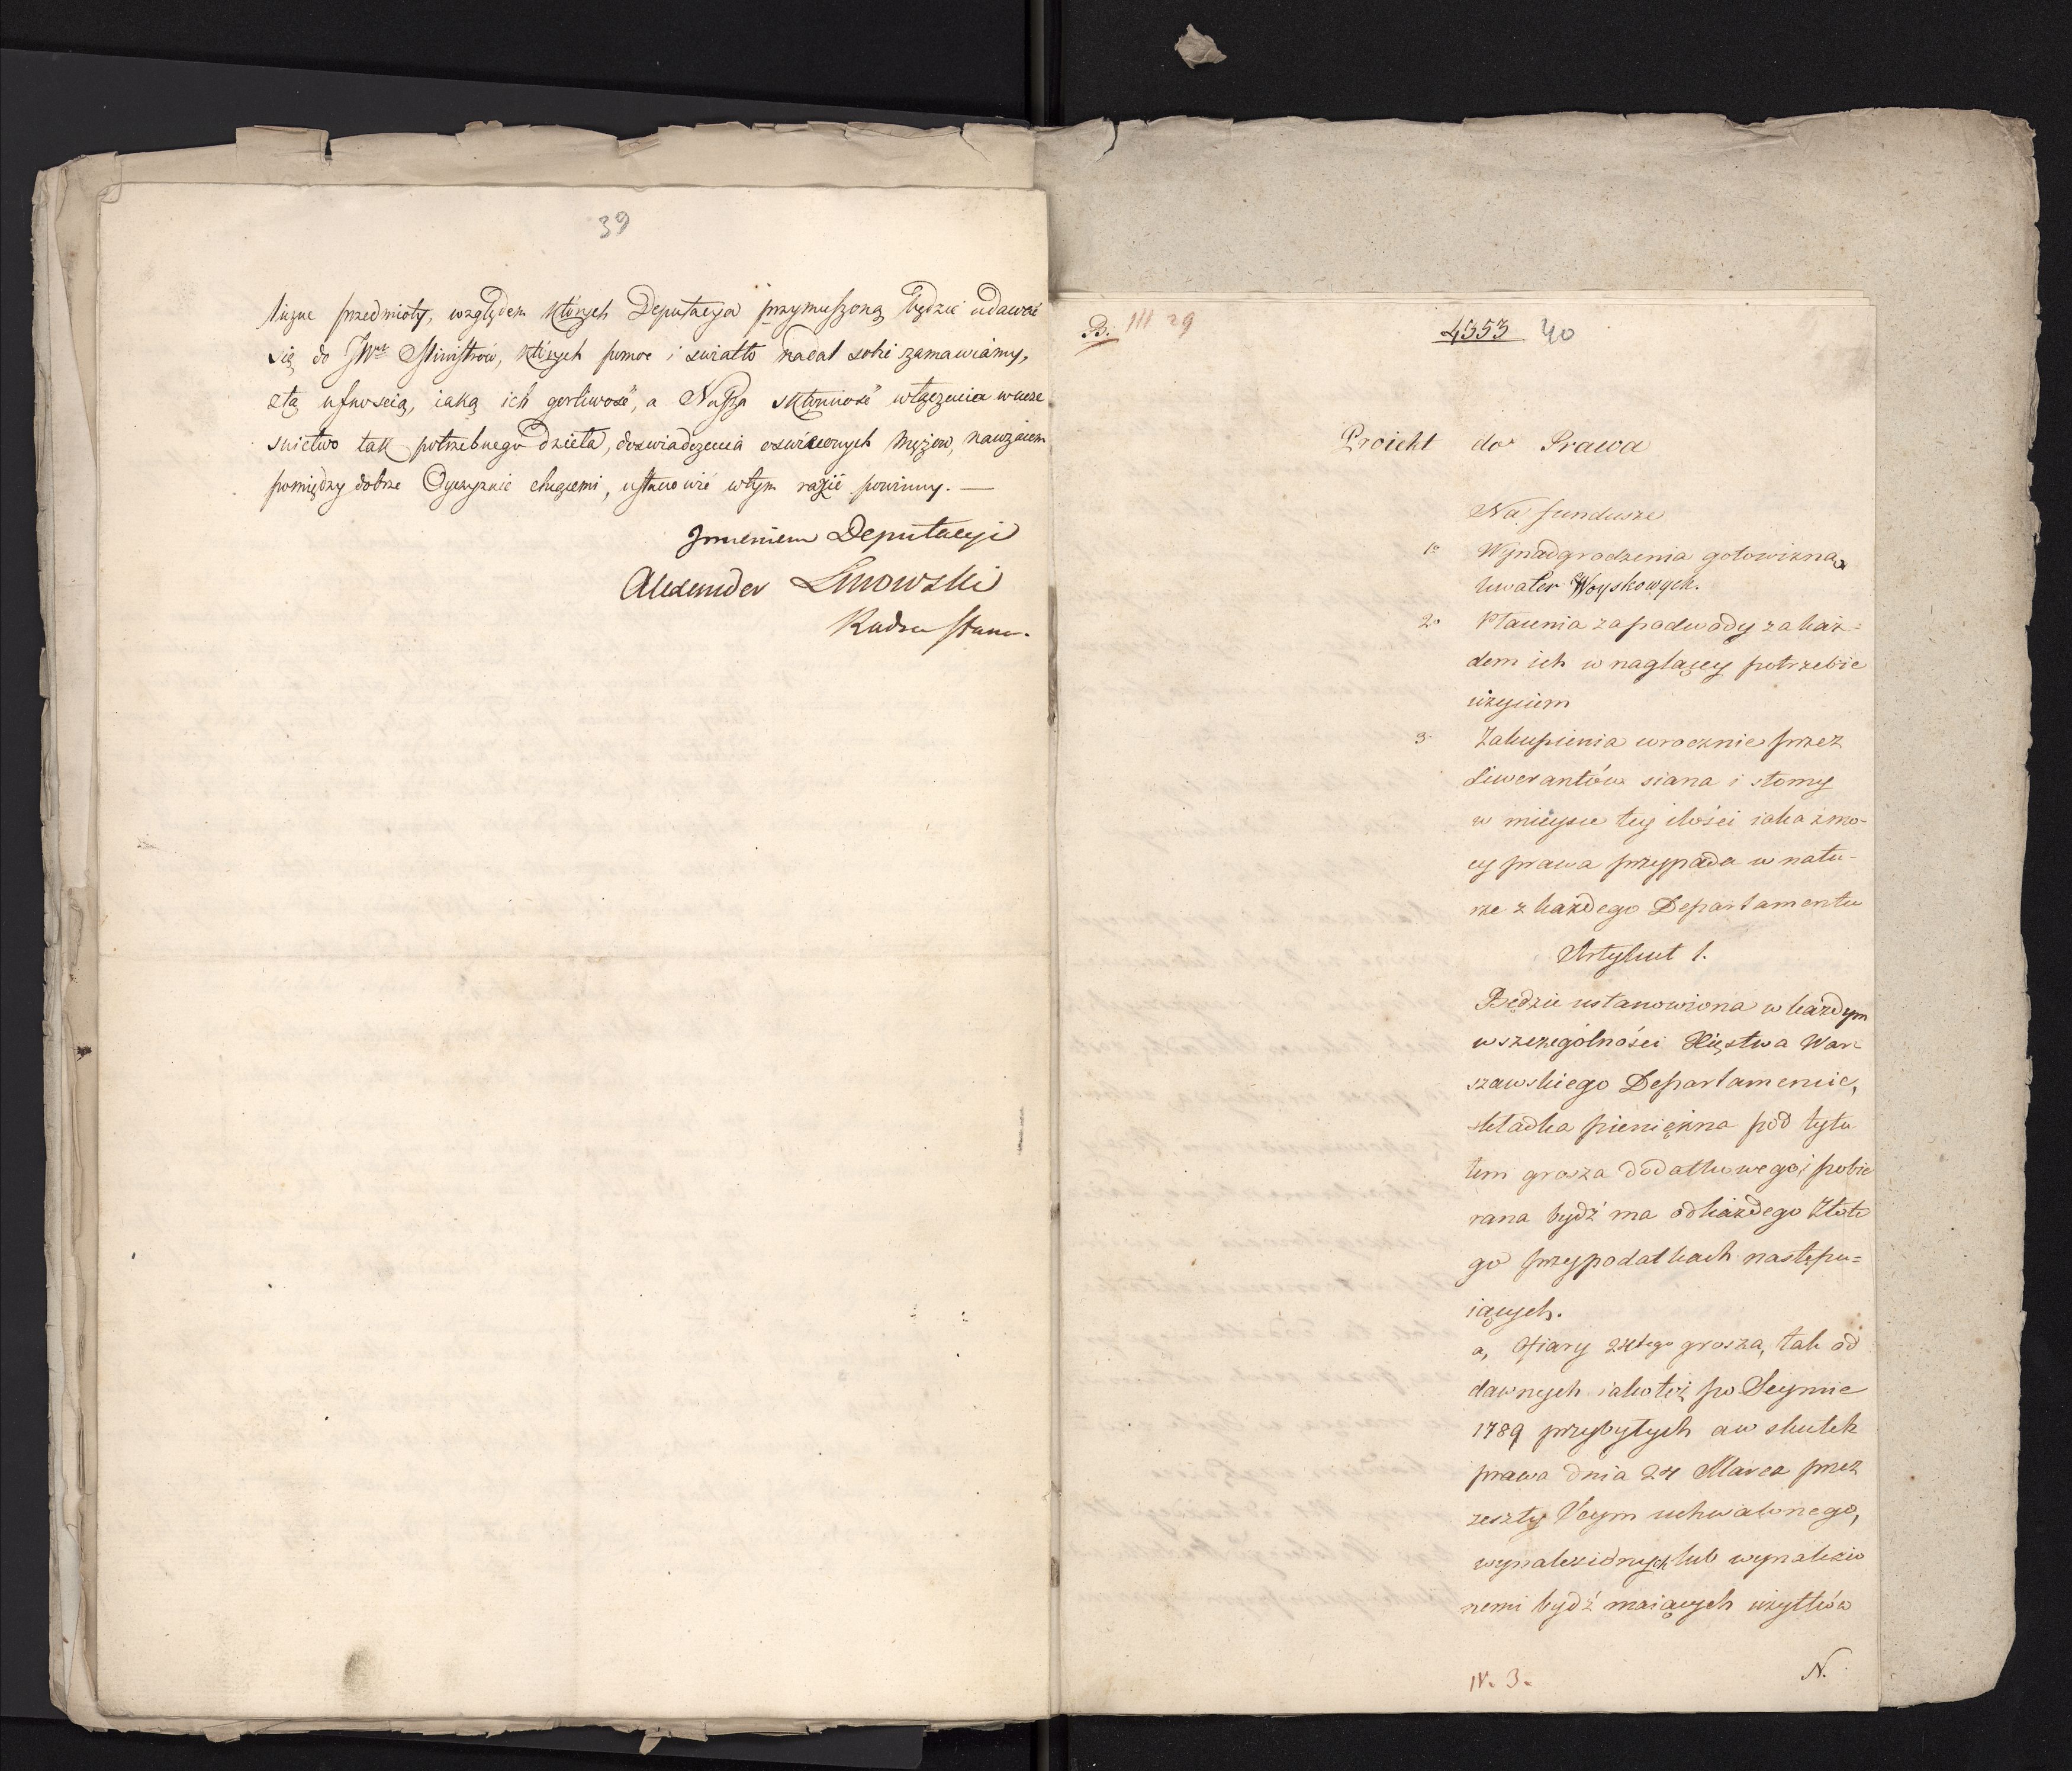 39
liczne przedmioty, względem których Deputacya przymuszoną będzie udawać
się do JWch Ministrów, których pomoc i światło nadal sobie zamawiamy,
ztą ufnością, iaką ich gorliwość, a Nasza skłonność włączenia wucze
snictwo tak potrzebnego dzieła, doswiadczenia oswieconych Mężow, nawzaiem
pomiędzy dobrze Oyczyznie chcącemi, ustanowić wtym razie powinny. —
Jmieniem Deputacyi
Alexander Linowski
Radca Stanu.
B. III 29
4553 40
Proiekt do Prawa
Na fundusze
1o Wynadgrodzenia gotowizną
kwater Woyskowych.
2o Płacenia za podwody za każ=
dem ich w naglącey potrzebie
użyciem
3. Zakupienia wrocznie przez
Liwerantów siana i słomy
w mieysce tey ilości iaka zmo-
cy prawa przypada w natu-
rze z każdego Departamentu
Artykuł 1.
Będzie ustanowiona w każdym
w szczególności Xięstwa War
szawskiego Departamencie,
składka pieniężna pod tytu
łem grosza dodatkowego, i pobie
rana bydź ma od każdego Złote
go przy podatkach nastepu=
iących.
a, Ofiary 24tego grosza, tak od
dawnych iako też po Seymie
1789 przybytych a w skutek
prawa dnia 24 Marca przez
zeszły Seym uchwalonego,
wynalezionych lub wynalezio
nemi bydź maiących użytków
IV. 3.
N.